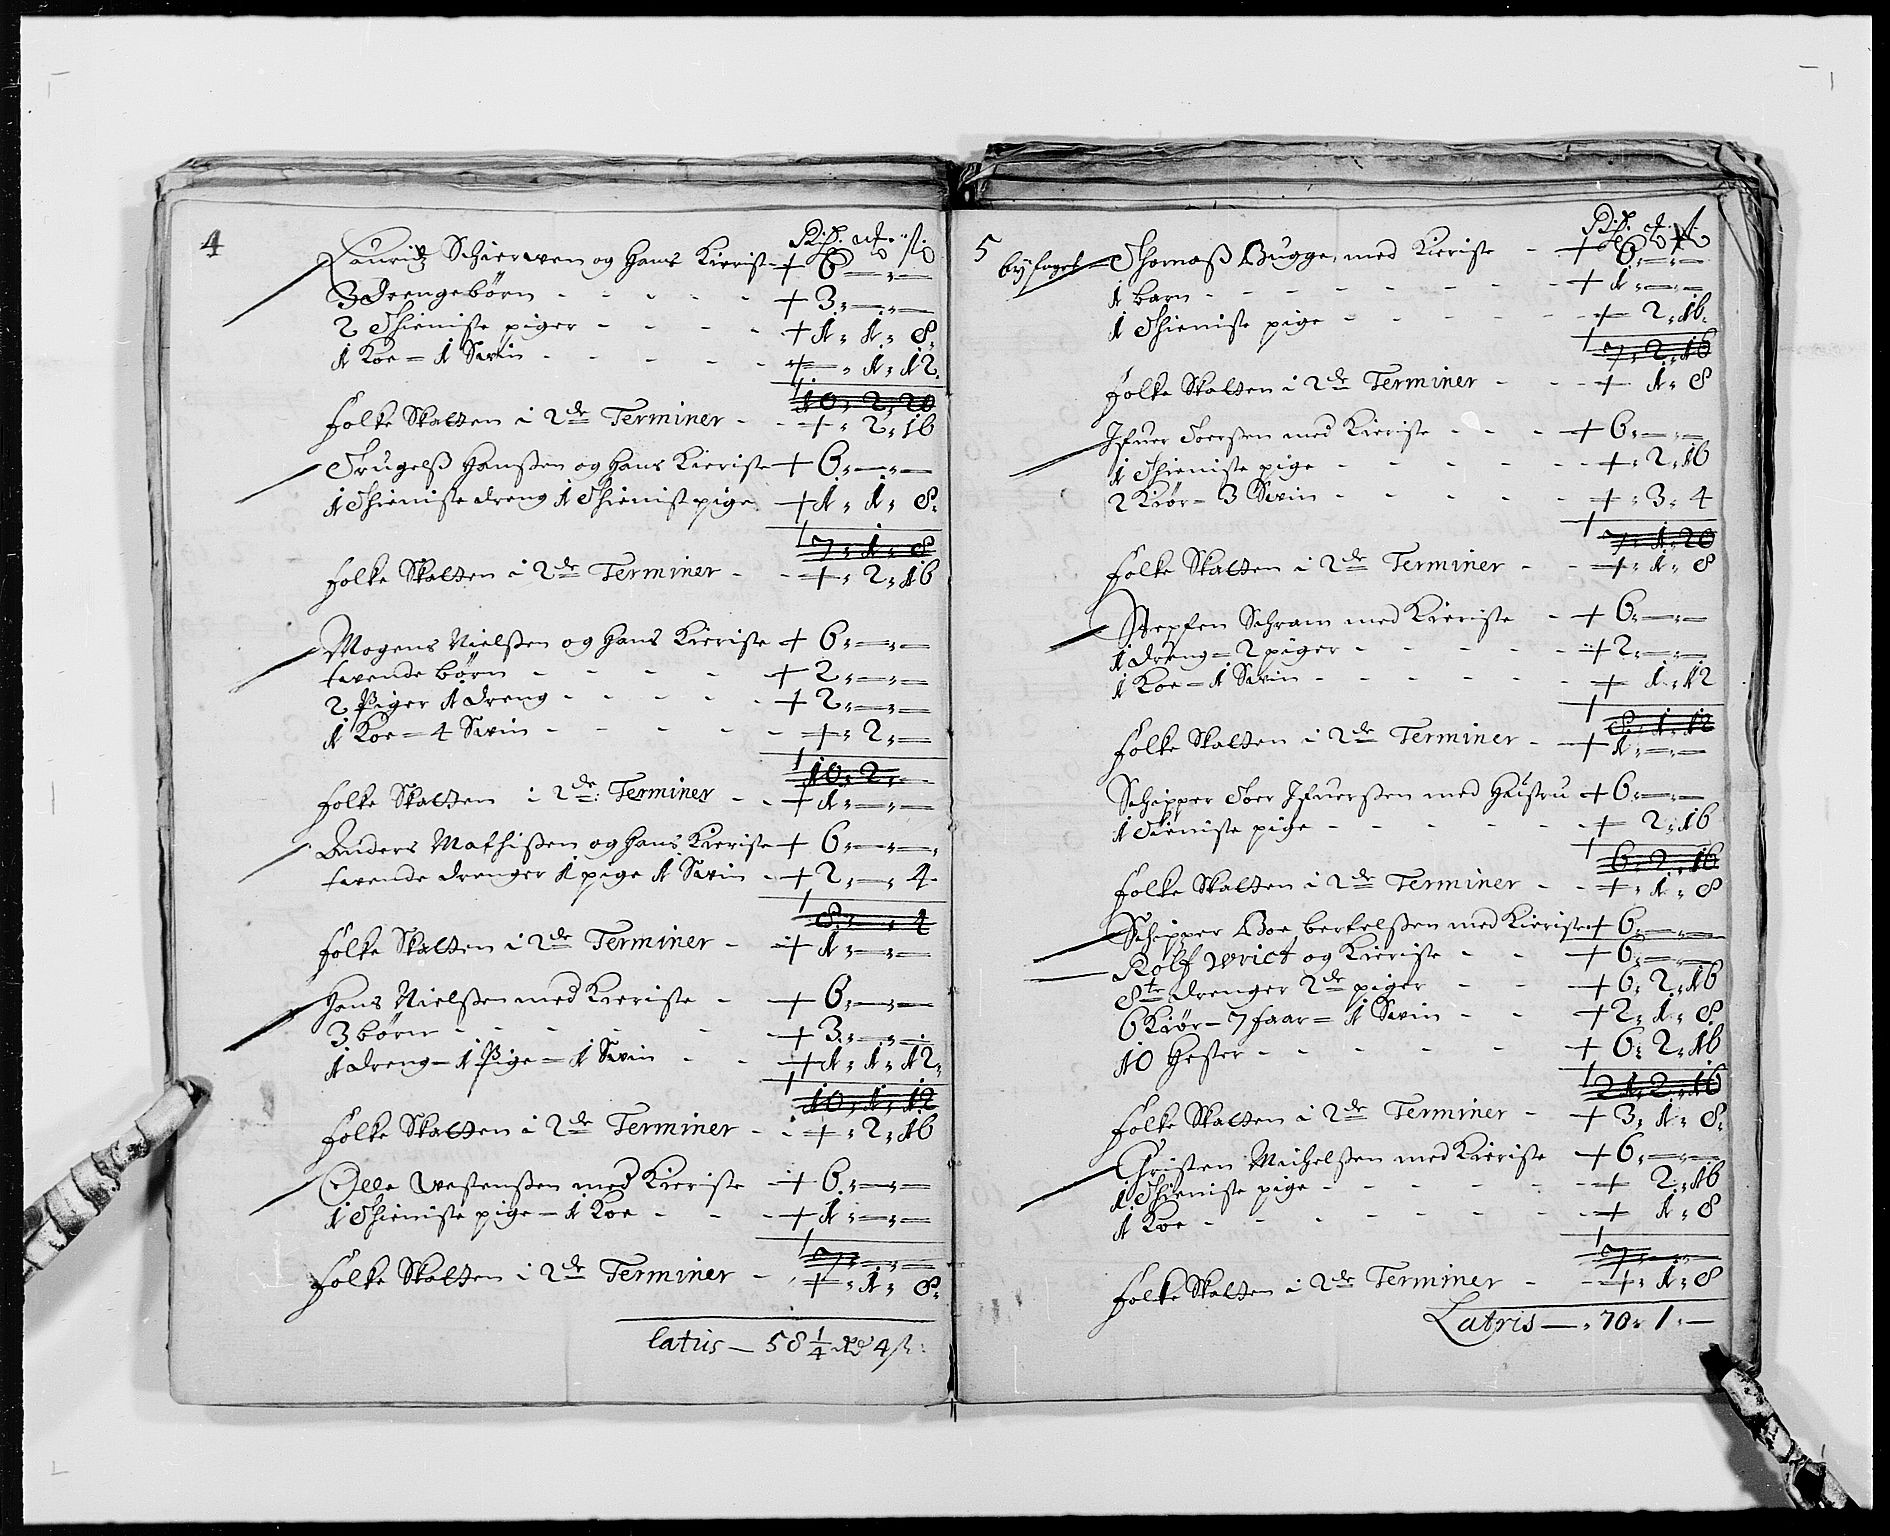 4
Rd: ort: ß:
Lauritz Schierven og hans Kieriste + 6 „ — „ —
3 drengebörn - - - - - + 3 „ — „ —
2 Thieniste piger - - - - + 1 „ 1 „ 8 „
1 Koe = 1 Svin - - - - + — „ 1 „ 12 „
10 „ 2 „ 20
folke Skatten i 2de Terminer - - + „ 2 „ 16
Trugelß Hanßen og hans Kieriste + 6 „ — „ —
1 Thieniste dreng 1 Thienist pige + 1 „ 1 „ 8 „
7 „ 1 „ 8
folke Skatten i 2de Terminer - - + „ 2 „ 16
Mogens Nielßen og hans Kieriste + 6 „ — „ —
tvende börn - - - - + 2 „ — „ —
2 Piger 1 dreng - - - - + 2 „ — „ —
1 Koe = 4 Svin - - - - - + „ 2 „ —
10 „ 2 „ —
folke Skatten i 2de: Terminer - - + 1 „ — „ —
Anders Mathißen og hans Kieriste + 6 „ — „ —
tvende drenger 1 pige 1 Svin - + 2 „ — „ 4
8 „ — „ 4
folke Skatten i 2de Terminer - + 1 „ — „ —
Hans Nielßen med Kieriste - + 6 „ — „ —
3 börn - - - - - + 3 „ — „ —
1 dreng = 1 Pige = 1 Svin - - + 1 „ 1 „ 12 „
10 „ 1 „ 12
folke Skatten i 2de Terminer - - + „ 2 „ 16
Olle Westenßen med Kieriste - + 6 „ — „ —
1 Thieniste pige = 1 Koe - - - + 1 „ — „ —
7 „ — „ —
folke Skatten i 2de Terminer - + „ 1 „ 8 „
latus — 58 1/4 Rd 4 ß:
5
Rd: ort ß
byfoget = Thomaß Bugge med Kieriste - + 6 „ — „ —
1 barn - - - - - - - + 1 „ — „ —
1 Thieniste pige - - - - - + 2 „ 16 „
7 „ 2 „ 16
folke Skatten i 2de Terminer - - - + 1 „ 8
Ifuer Toerßen med Kieriste - - - + 6 „ — „ —
1 Thieniste pige - - - - - + „ 2 „ 16
2 Kiör = 3 Svin - - - - - + „ 3 „ 4
7 „ 1 „ 20
folke Skatten i 2de Terminer - - + „ 1 „ 8
Stepfen Schram med Kieriste - + 6 „ — „ —
1 dreng = 2 piger - - - - - + 2 „ — „ —
1 Koe = 1 Svin - - - - - - + 1 „ 12
8 „ 1 „ 12
folke Skatten i 2de Terminer - + 1 „ — „ —
Schipper Toer Ifuerßen med Hustru + 6 „ — „ —
1 Tieniste pige - - - - - - + 2 „ 16
6 „ 2 „ 16
folke Skatten i 2de Terminer - - + „ 1 „ 8
Schipper Boe bertelßen med Kieriste + 6 „ — „ —
Rolf Wrict og Kieriste - - + 6 „ — „ —
8te drenger 2de piger - - + 6 „ 2 „ 16
6 Kiör = 7 faar = 1 Svin - - + 2 „ 1 „ 8
10 Hester - - - - - + 6 „ 2 „ 16
21 „ 2 „ 16
folke Skatten i 2de Terminer - + 3 „ 1 „ 8 „
Christen Michelßen med Kieriste + 6 „ — „ —
1 Thieniste pige - - - - - - + 2 „ 16
1 Koe - - - - - - - + 1 „ 8
7 „ — „ —
folke Skatten i 2de Terminer - - + „ 1 „ 8
Latris — „ 70 „ 1 „ —